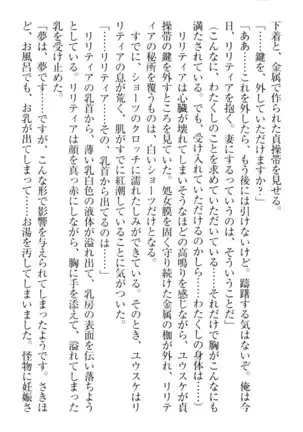 下着と、金属で作られた貞操帯を見せる。
「……鍵を、外していただけますか?」
「ああ……これを外したら、もう後には引けないけど。躊躇する気はないぞ。俺は今
日、リリティアを抱く。妻にするっていうのは、そういうことだ」
(こんなに、わたくしのことを求めていただいている……それだけで胸がこんなにも
高鳴って……でも、受け入れていただけるのかしら……わたくしの身体は……)
リリティアは心臓が壊れてしまいそうなほどの高鳴りを感じながら、ユウスケが貞
操帯の鍵を外すところを見ていた。処女膜を固く守り続けた金属の枷が外れ、リリテ
ィアの秘所を覆うものは、白いショーツだけとなる。
すでに、ショーツのクロッチに濡れたしみができている。そのとき、ユウスケはリ
リティアの息が荒く、肌がすでに紅潮していることに気がついた。
「……リリティア……その、乳首から出てるのは……」
リリティアの乳首から、薄い乳白色の液体が溢れ出て、乳房の表面を伝い落ちよう
としている。リリティアは顔を真っ赤にしながら、胸に手を添えて、溢れてしまった
乳を受け止めた。
「夢は、夢です……ですが、こんな形で影響を与えられてしまったようです。さきほ
ど、お風呂でも、お乳が出てしまって……お湯を汚してしまいました。怪物に妊娠さ